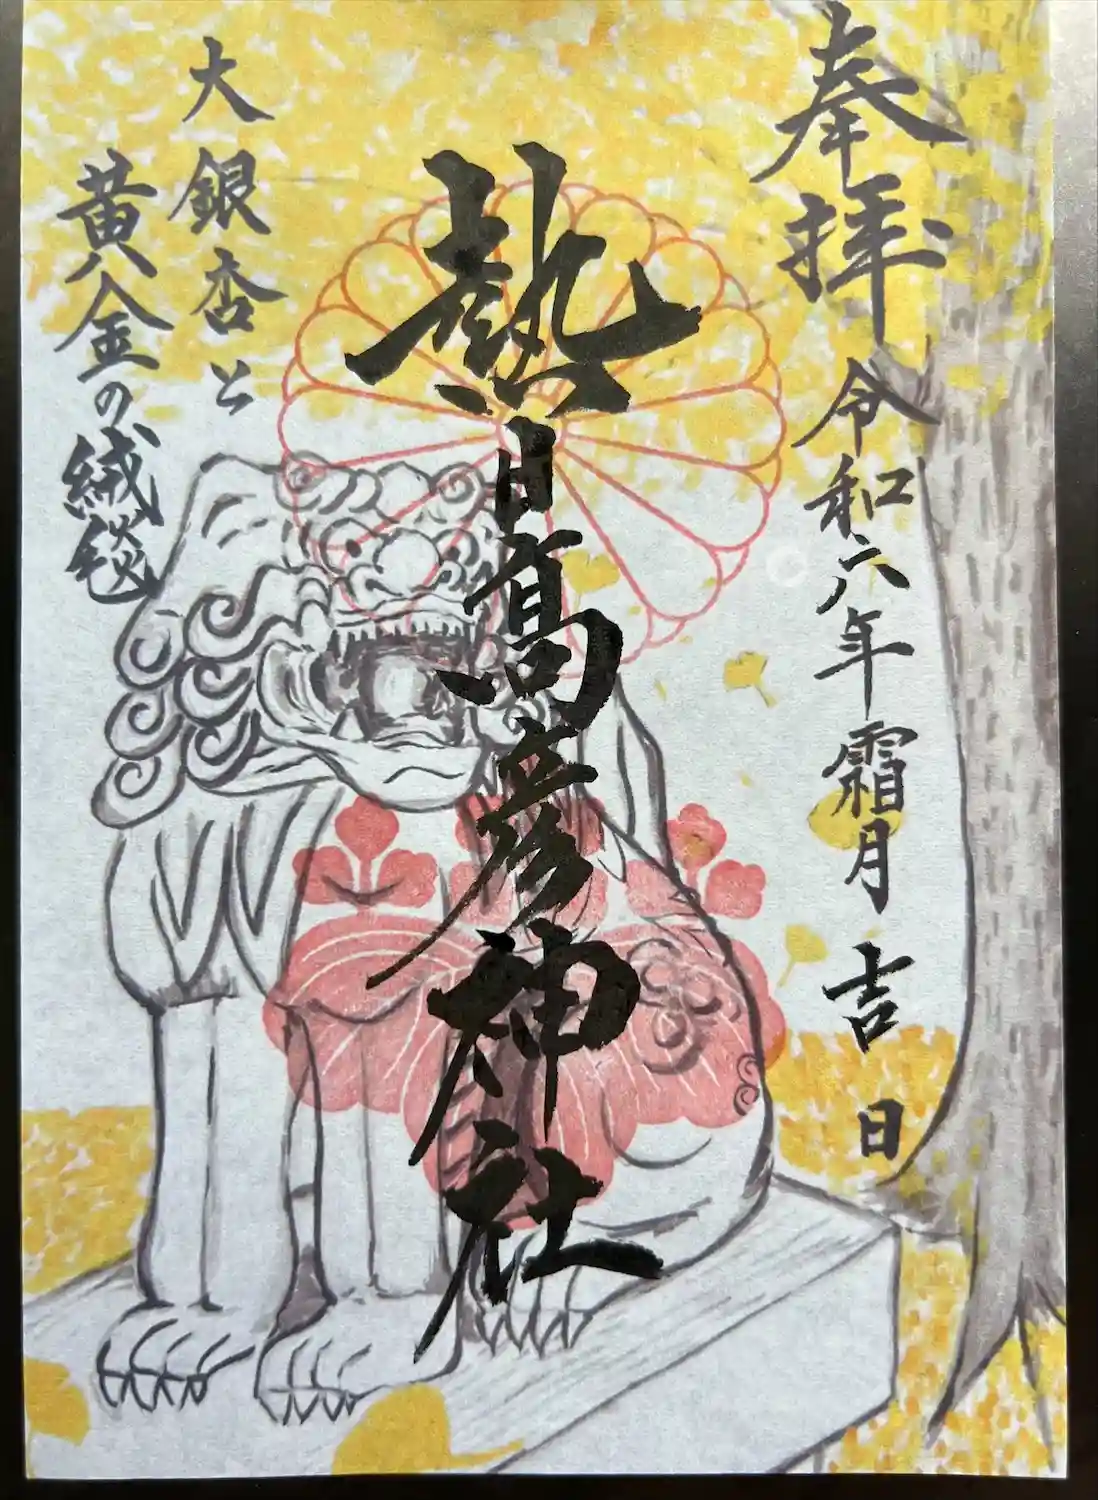 奉拝
令和六年霜月吉日
熱日高彦神社
大銀杏と
黄金の絨毯